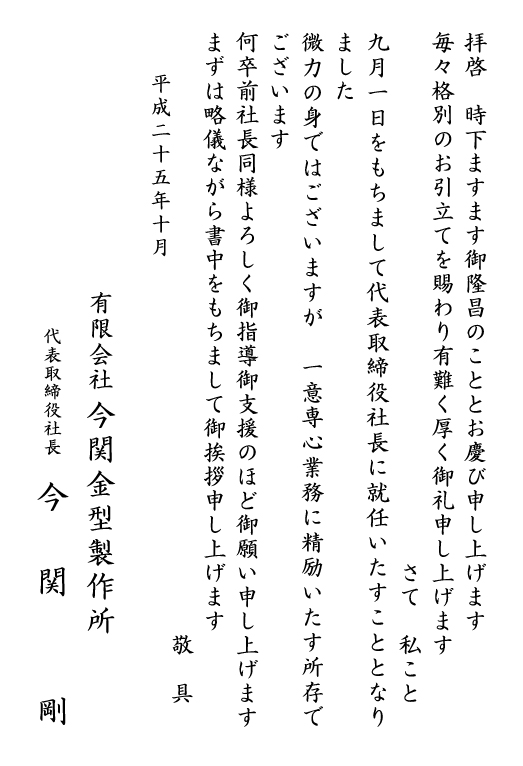 拝啓　時下ますます御隆昌のこととお慶び申し上げます
毎々格別のお引立てを賜わり有難く厚く御礼申し上げます
さて　私こと
九月一日をもちまして代表取締役社長に就任いたすこととなり
ました
微力の身ではございますが　一意専心業務に精励いたす所存で
ございます
何卒前社長同様よろしく御指導御支援のほど御願い申し上げます
まずは略儀ながら書中をもちまして御挨拶申し上げます
敬　具
平成二十五年十月
有限会社 今関金型製作所
代表取締役社長　今　関　剛